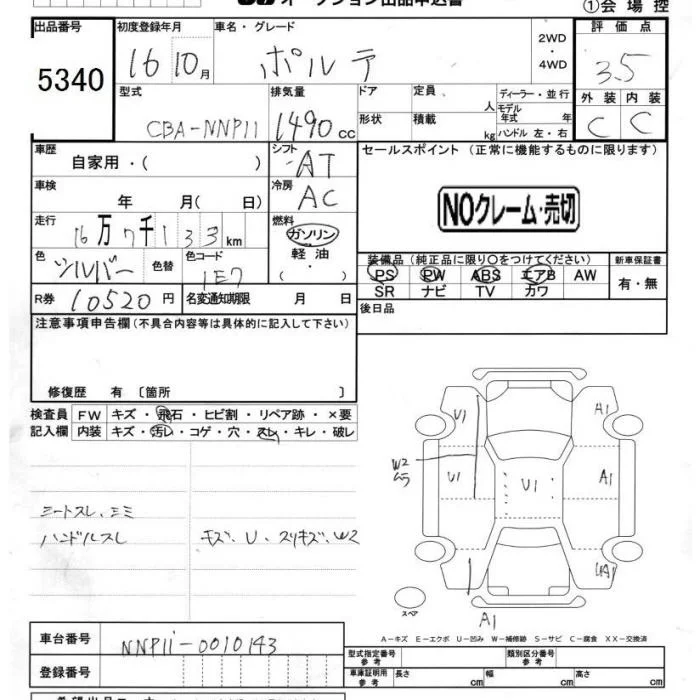 オークション出品申込書
①会場控
出品番号 初度登録年月 車名・グレード 評価点
5340 16 10月 ポルテ 2WD・4WD 3.5
型式 排気量 ドア 定員 人 ディーラー・並行 外装 内装
CBA-NNP11 1490 CC 形状 積載 kg モデル年式 年 C C
ハンドル 左・右
車歴 シフト セールスポイント (正常に機能するものに限ります)
自家用・( ) AT
車検 冷房
年 月( 日) AC NOクレーム・売切
走行 燃料
16万7千133km ガソリン
軽油
・
( )
装備品 (純正品に限り○をつけてください) 新車保証書
色 色替 色コード PS PW ABS エアB AW 有・無
シルバー 1E7 SR ナビ TV カワ
R券 10520円 名変通知期限 月 日 後日品
注意事項申告欄 (不具合内容等は具体的に記入して下さい)
修復歴 有 〔箇所 〕
検査員 FW キズ・飛石・ヒビ割・リペア跡・×要
記入欄 内装 キズ・汚レ・コゲ・穴・スレ・キレ・破レ
シートスレ、シミ
ハンドルスレ キズ、U、スリキズ、W2
U1 A1
W2
ムラ
U1 U1 A1
UA1
スペア
A1
A-キズ E-エクボ U-凹み W-補修跡 S-サビ C-腐食 XX-交換済
車台番号 NNP11-0010143
型式指定番号 参考 類別区分番号 参考
登録番号 車庫証明用 参考 長さ cm 幅 cm 高さ cm